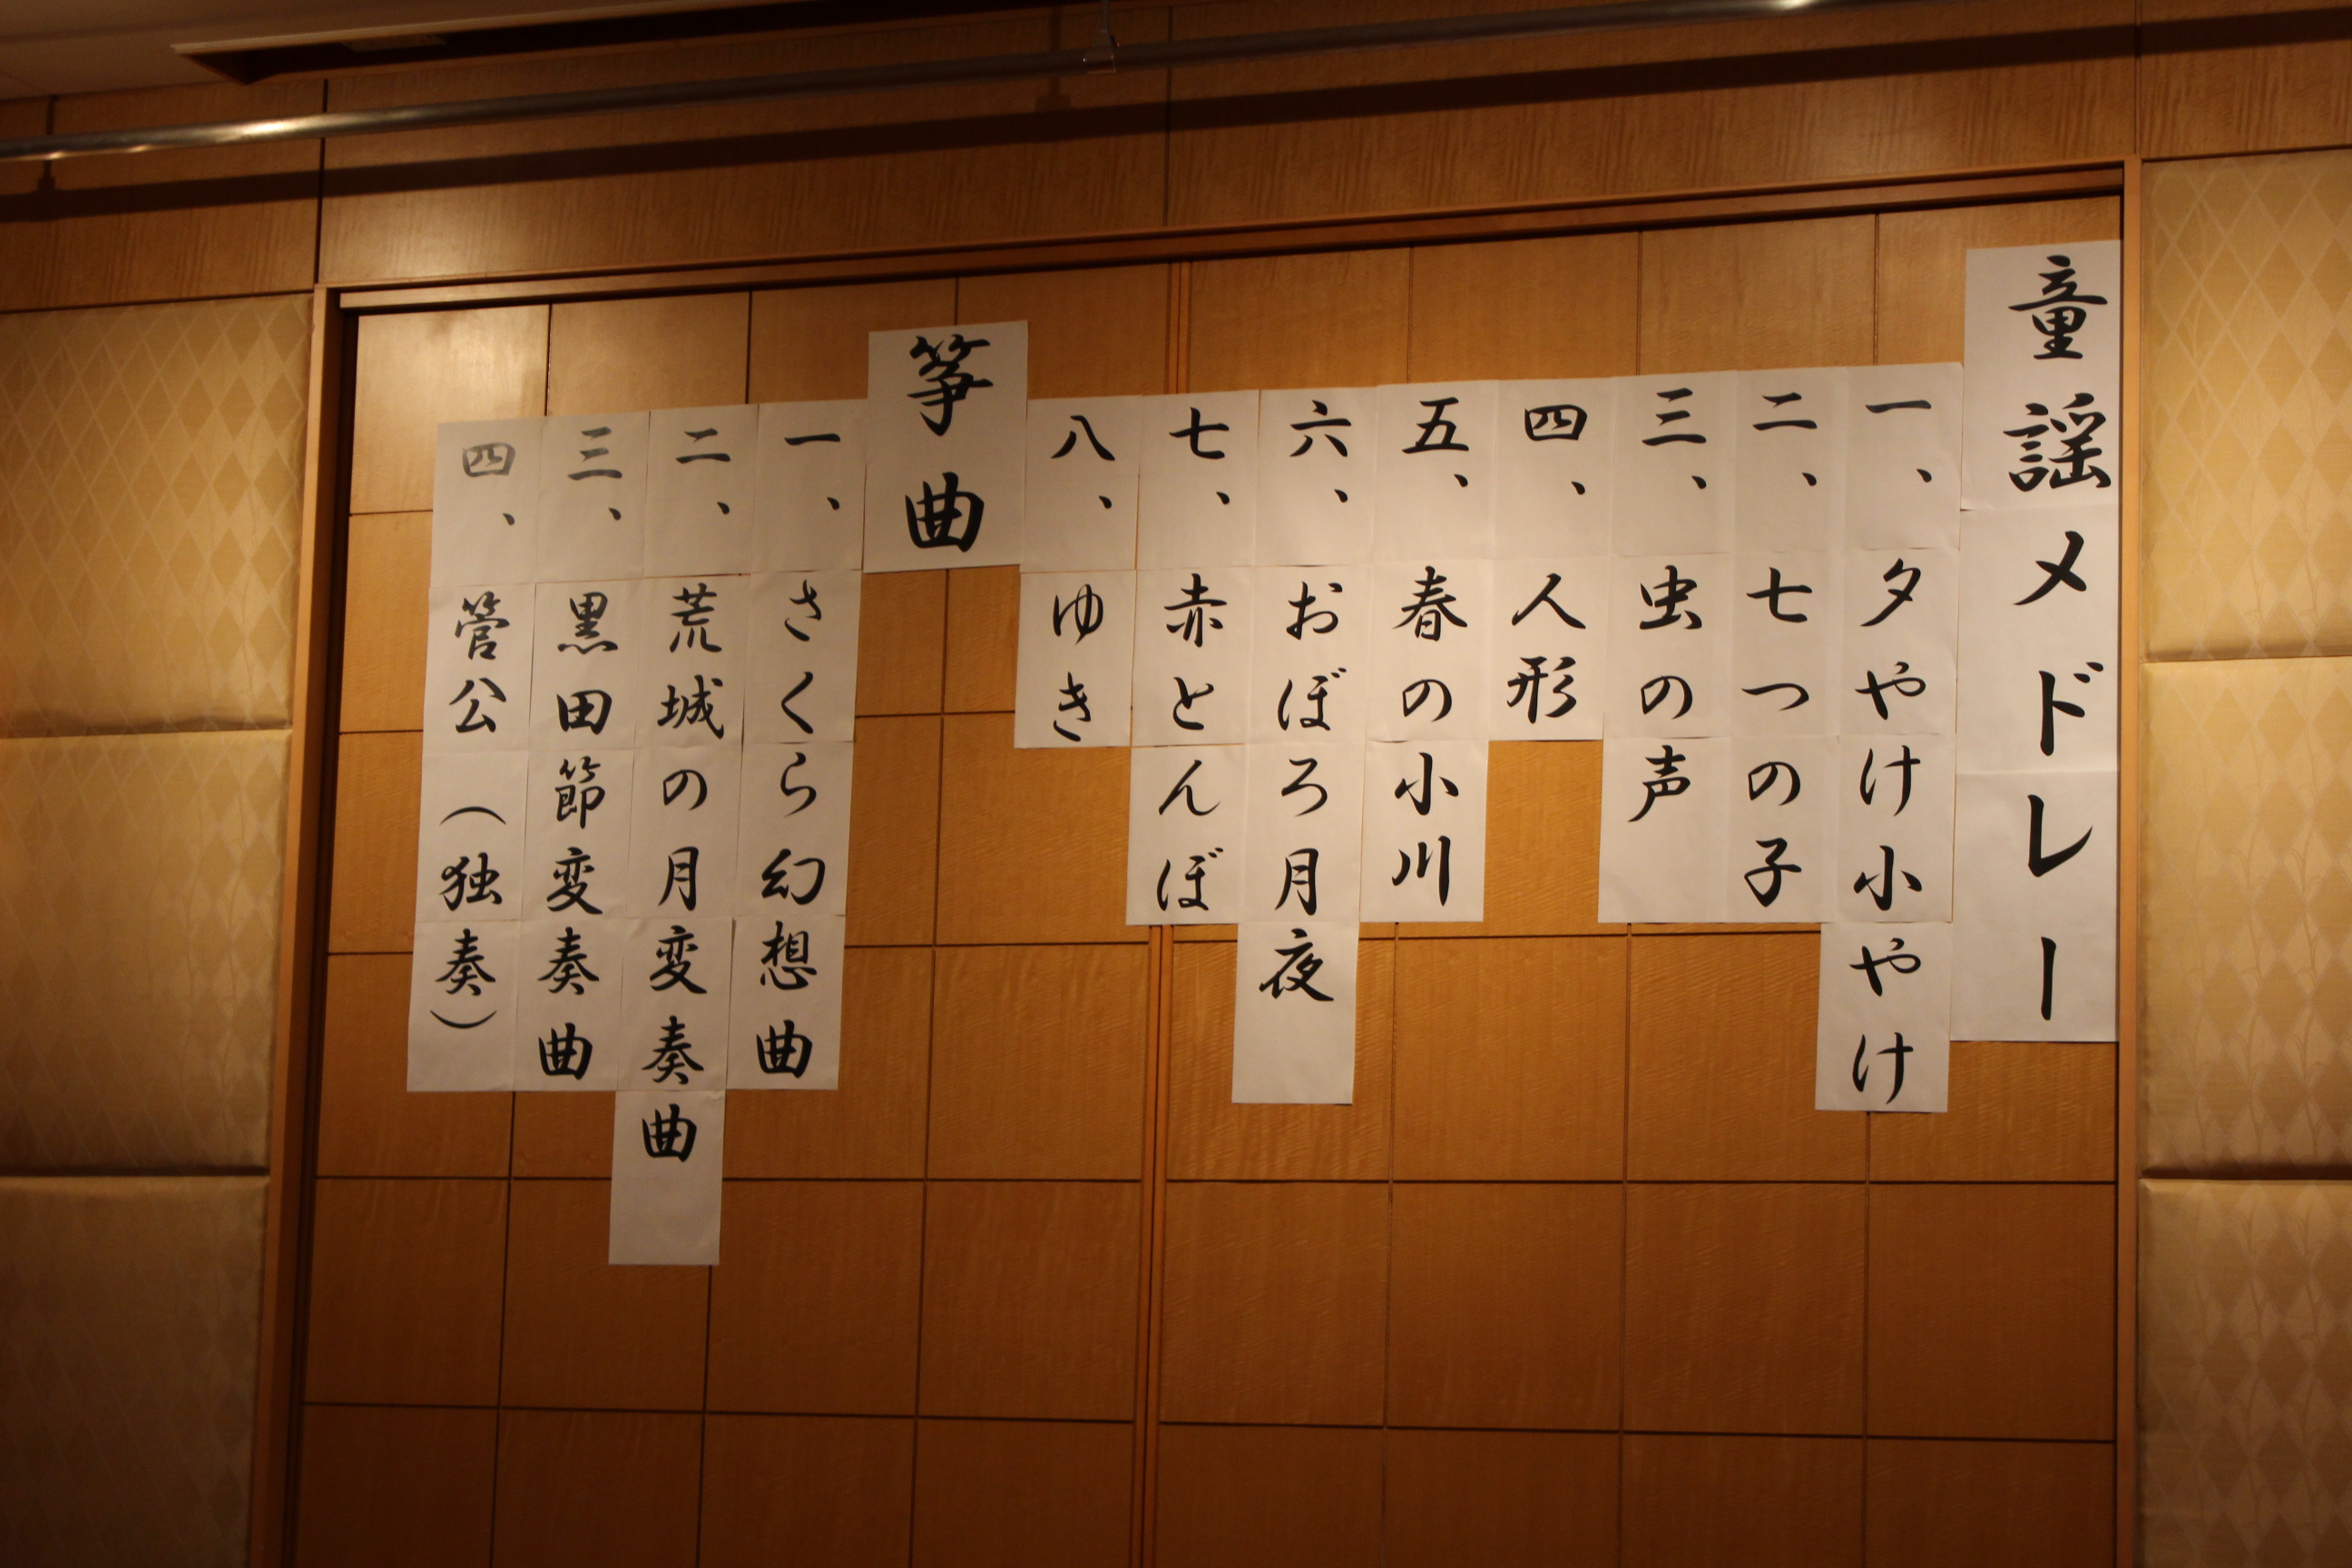 童謡メドレー
一、夕やけ小やけ
二、七つの子
三、虫の声
四、人形
五、春の小川
六、おぼろ月夜
七、赤とんぼ
八、ゆき
箏曲
一、さくら幻想曲
二、荒城の月変奏曲
三、黒田節変奏曲
四、管公（独奏）